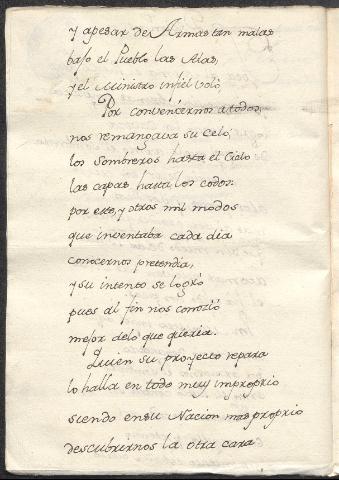 y apesar de Armas tan malas
bajo el Pueblo las Alas,
y el Ministro infiel voló,
Por convencernos a todos,
nos remangava su celo,
los Sombreros hasta el Cielo
las capas hasta los codos:
por esto, y otros mil modos
que inventaba cada dia
conocernos pretendia,
y su intento se logró
pues al fin nos conozió
mejor de lo que queria.
Quien su proyecto repara
lo halla en todo muy improprio
siendo en su Nacion mas proprio
descubrirnos la otra cara